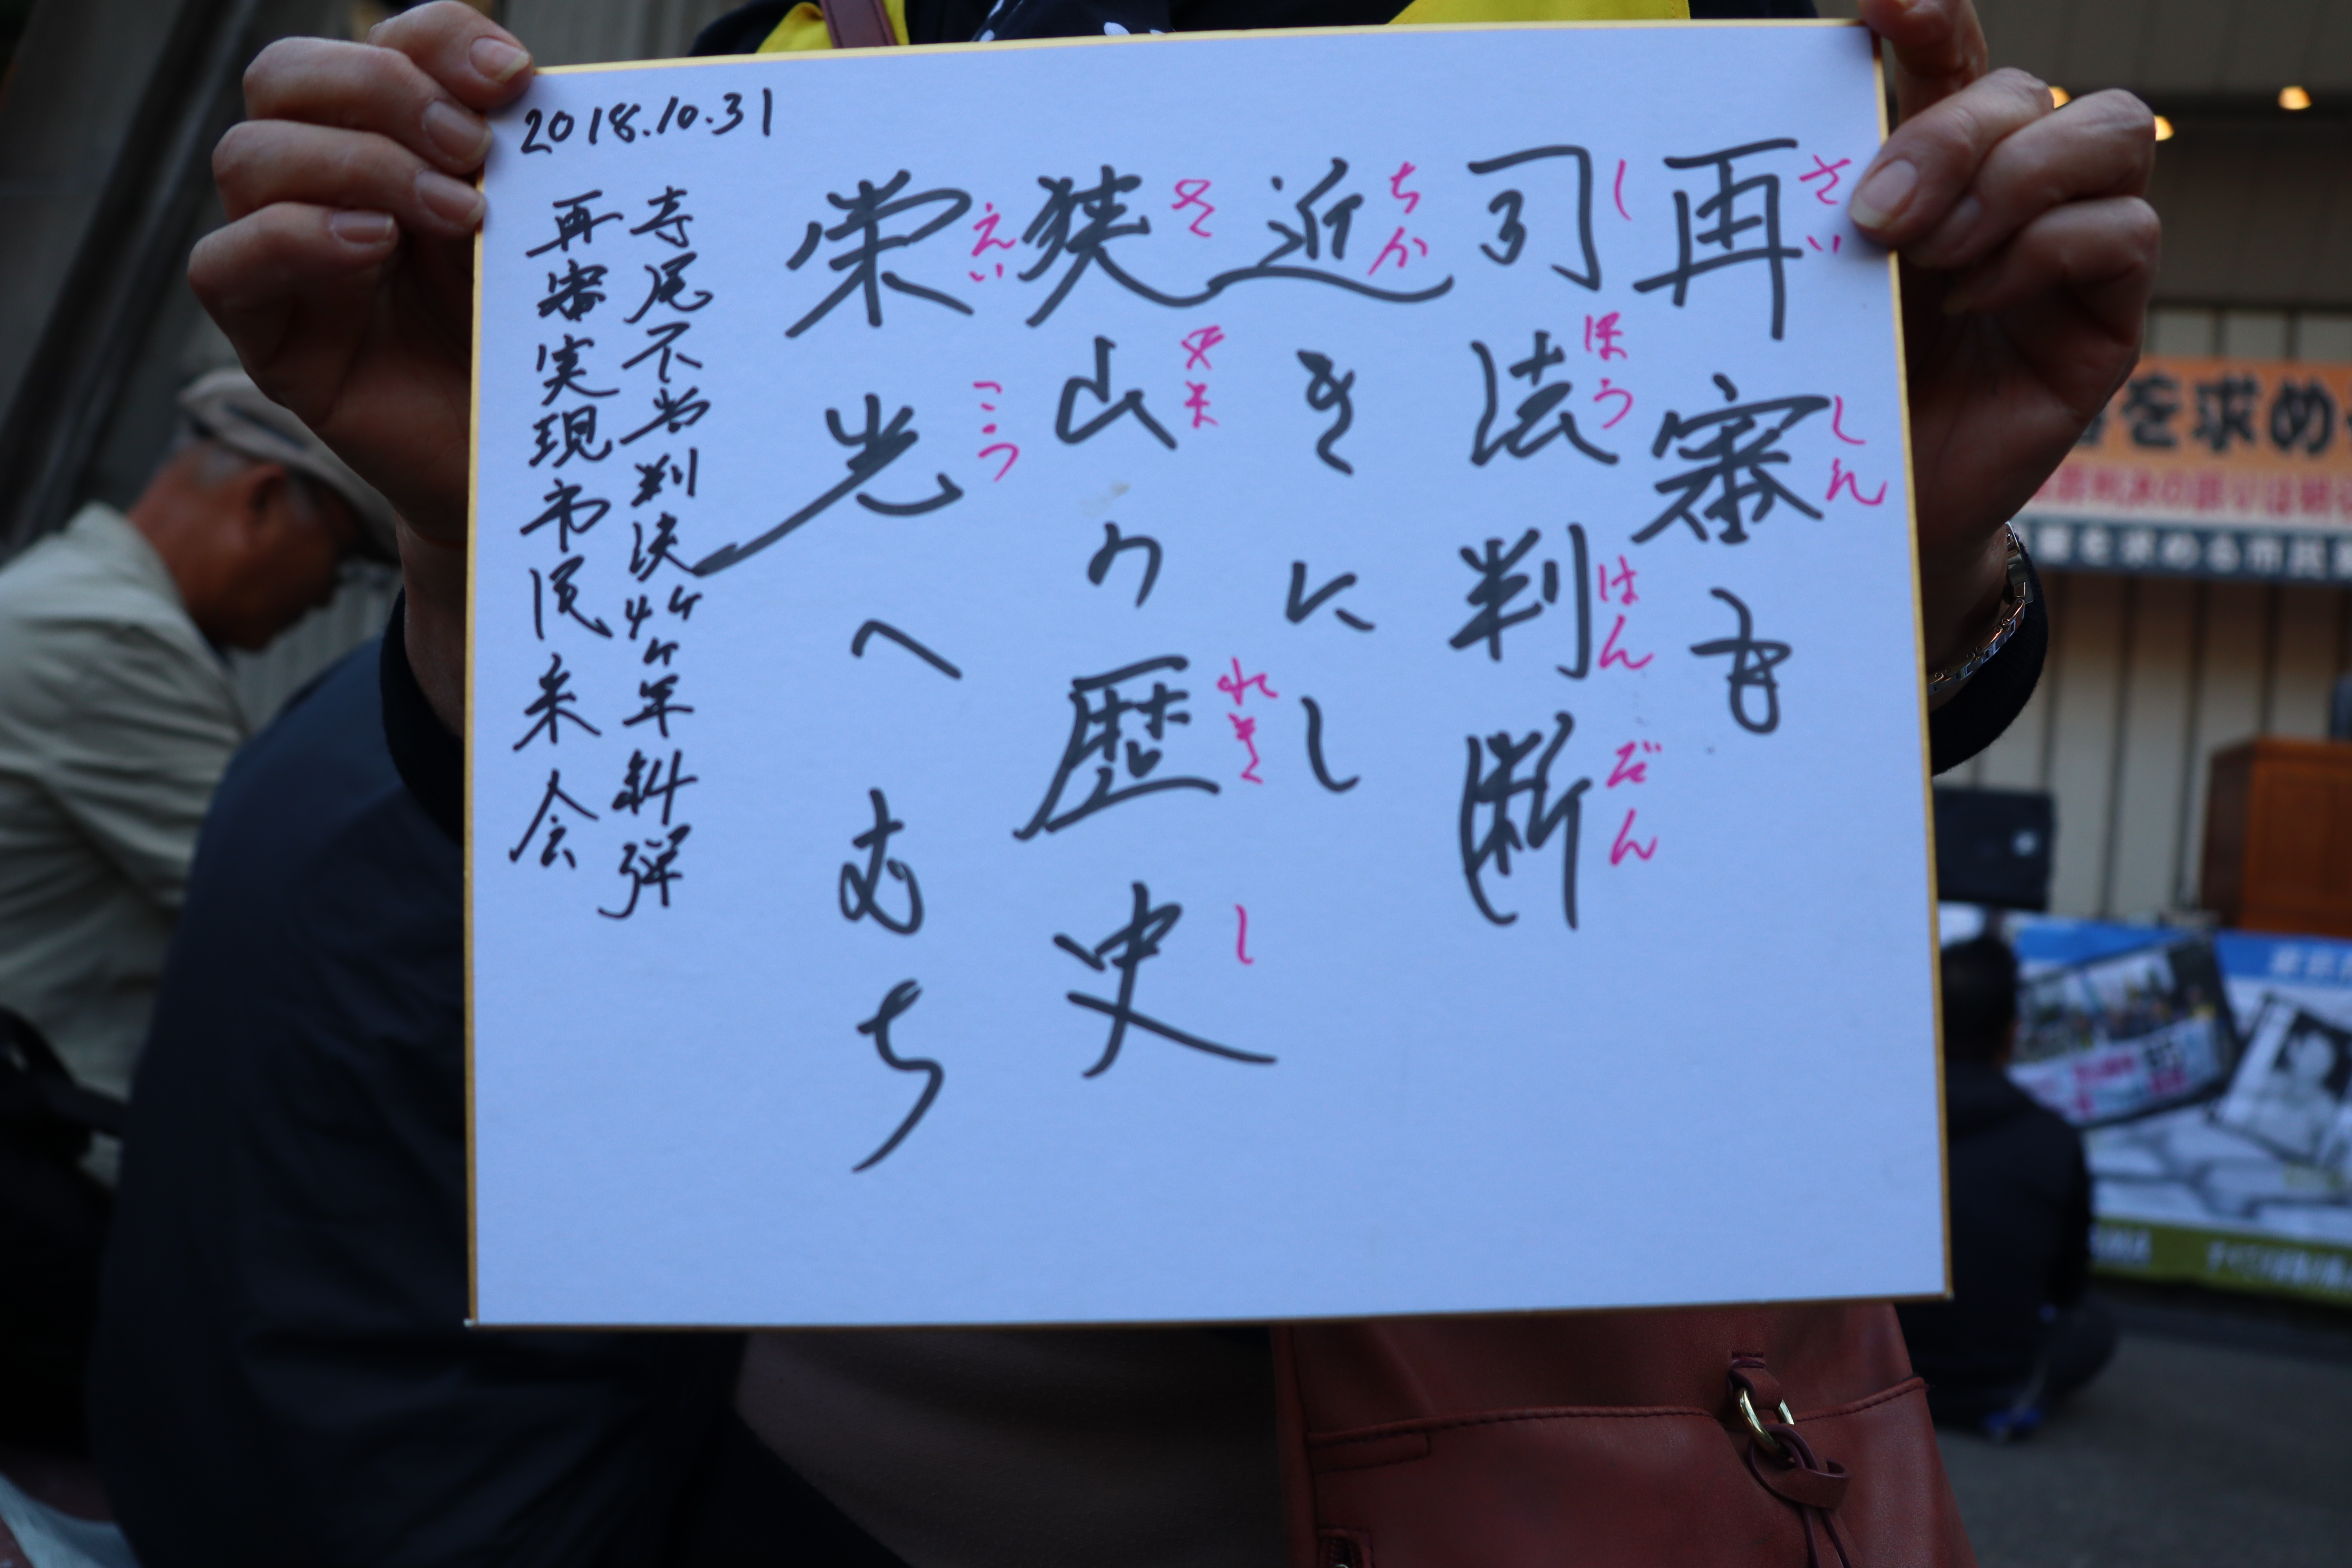 再審も
さいしん
司法判断
しほうはんだん
近きにし
ちか
狭山の歴史
さやま れきし
栄光へむち
えいこう
2018.10.31
寺尾不当判決44ヶ年糾弾
再審実現市民集会
を求め
を求める市民